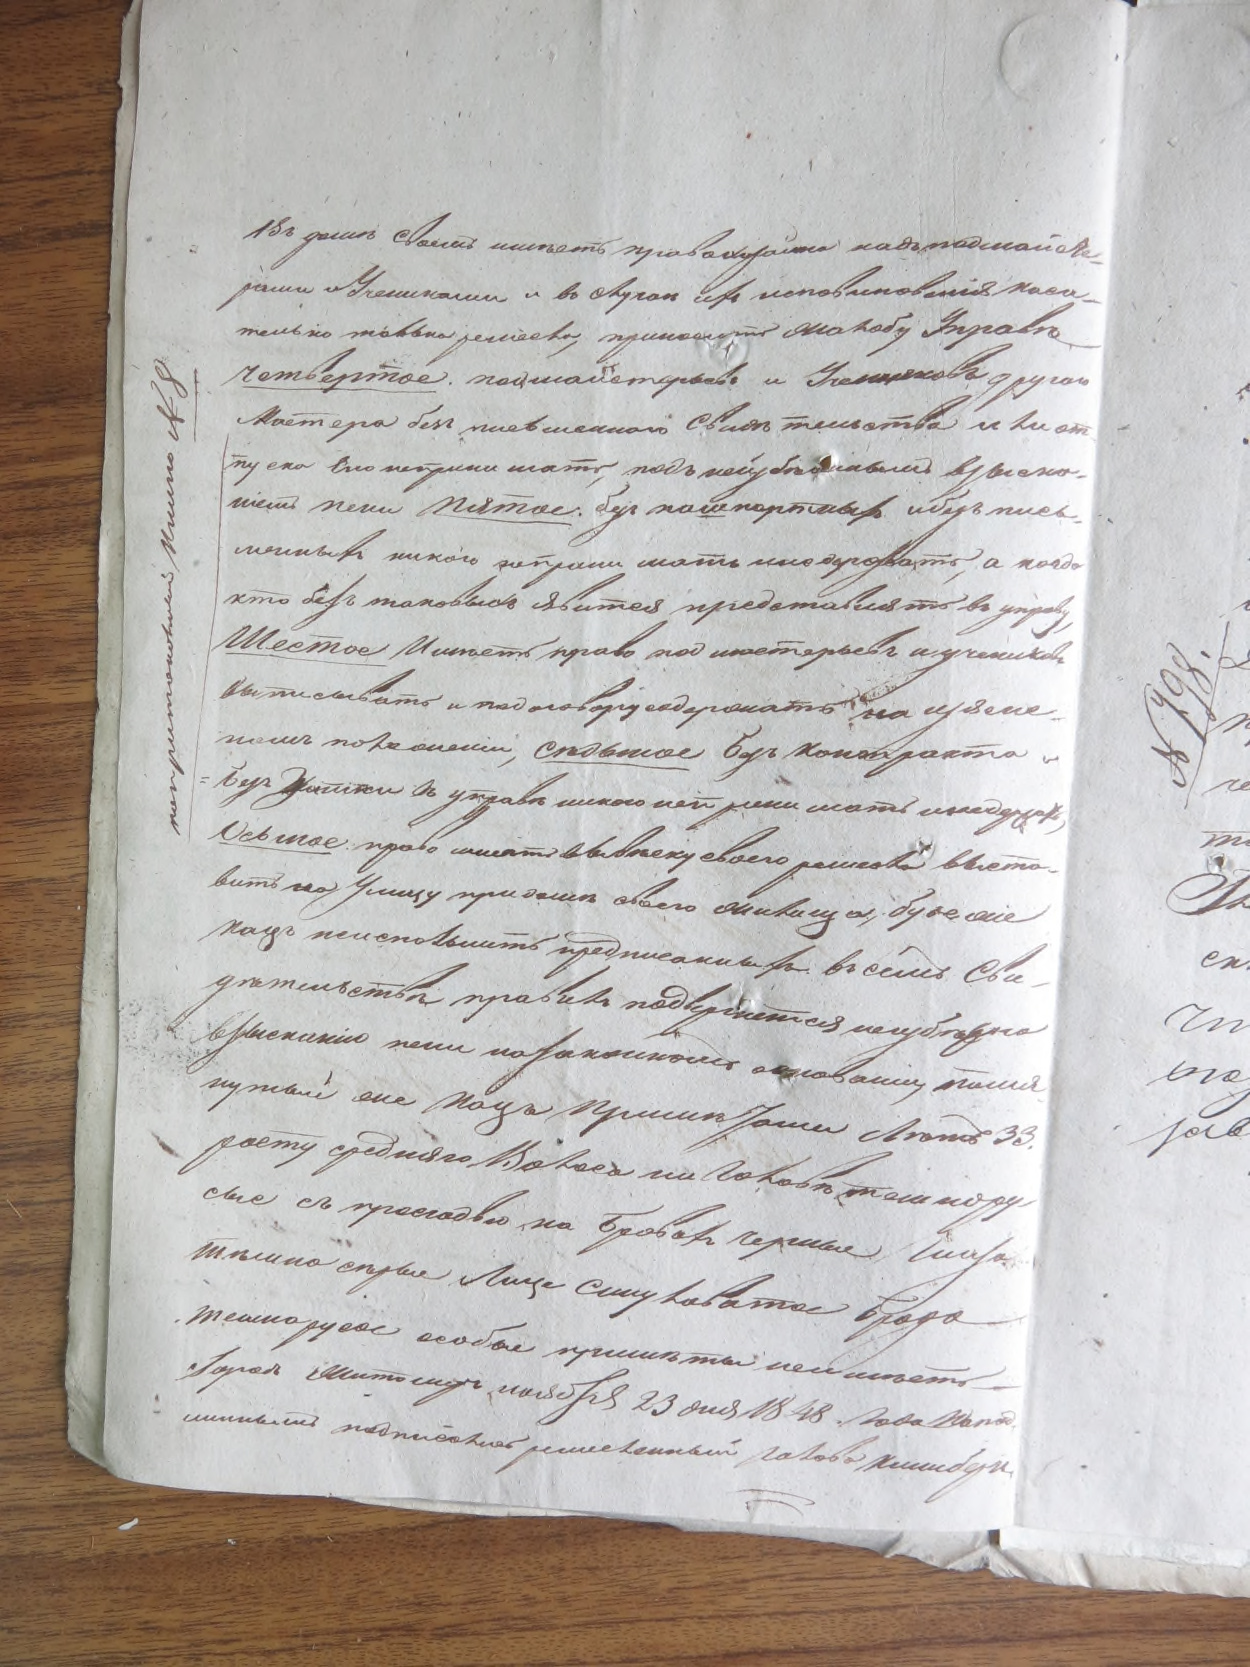 въ домѣ своемъ имѣетъ право хозяина надъ подмайсте-
рами и Учениками и въ случаи ихъ неповиновенія каса-
тельно только ремесла, приносить жалобу Управѣ
Четвертое. подмайстерьевъ и Учениковъ другаго
Мастера безъ письменного Свидѣтельства или от-
пуска его непринимать, подъ неизбѣжнымъ взыска-
ніемъ пени Пятое. безъ пашпортныхъ и безъ пись-
менныхъ никого непринимать инедержать, а когда
кто безъ таковыхъ явится представлять въ управу,
Шестое Имѣетъ право подмастерьевъ и учениковъ
выписывать и подоговору содержать на изясне-
номъ положеніи, Седьмое Безъ контракта и
безъ записки въ управѣ никого непринимать инедержать,
Осьмое право имѣть вывѣску своего ремесла выста-
вить на Улицу придомѣ своего жилища, буде же
Кацъ неисполнитъ предписанныхъ въ семъ Сви-
дѣтельствѣ правилъ подвергнется неизбѣжно
взысканію пени назаконномъ основаніи, помя-
нутый же Кацъ Примѣтами Лѣтъ 33.
росту средняго, Волоса на головѣ темнору-
сые съ проседью на бровахъ черные, Глаза
темно серые Лице смугловатое борода
темнорусая особые примѣты неимѣетъ
Городъ Житомиръ ноября 23 дня 1848 Года Напод-
линнымъ подписалъ ремесленный голова
непримѣчаніемъ Книги № 8
№ 498.